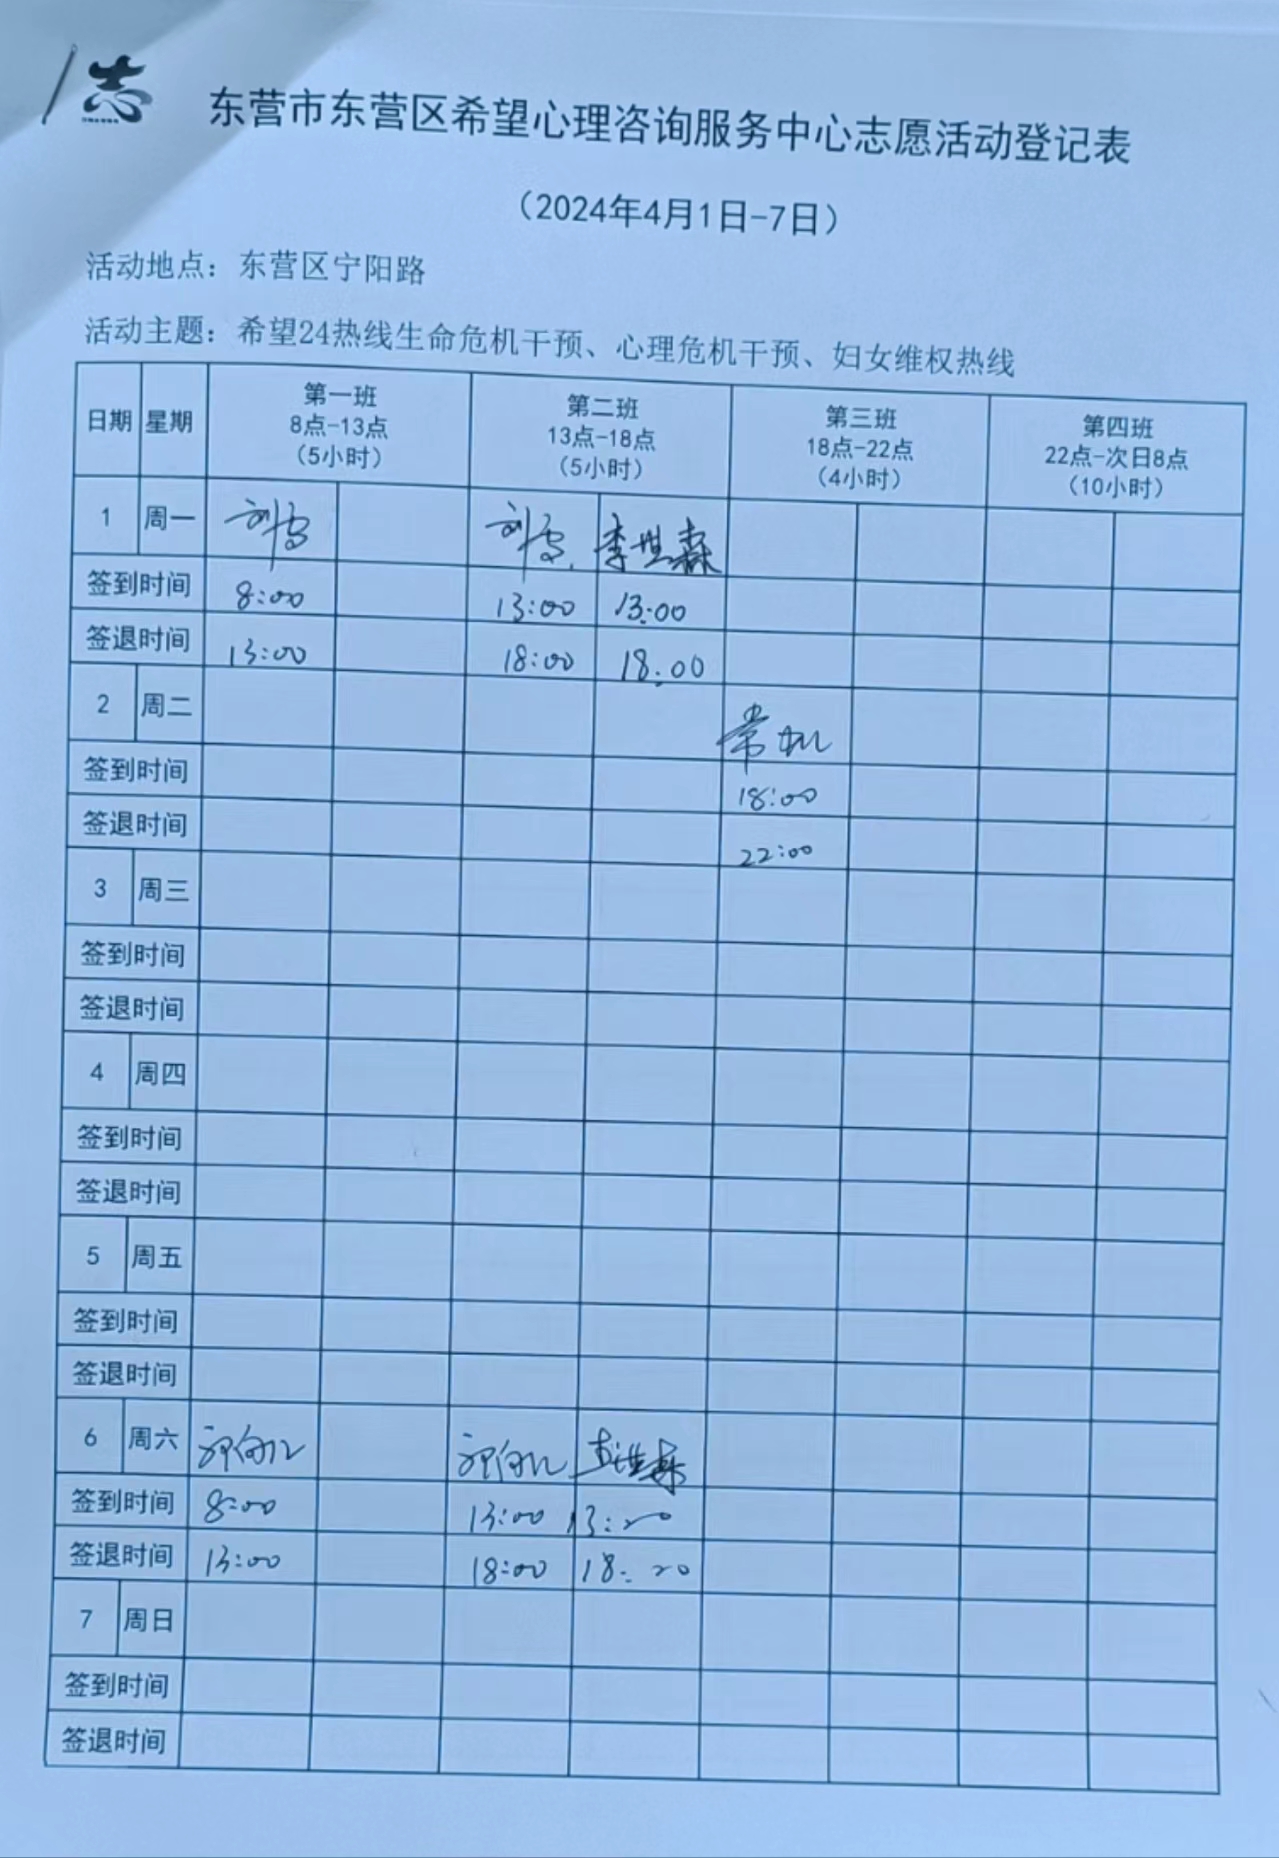 志
东营市东营区希望心理咨询服务中心志愿活动登记表
（2024年4月1日-7日）
活动地点：东营区宁阳路
活动主题：希望24热线生命危机干预、心理危机干预、妇女维权热线
日期 星期 第一班 第二班 第三班 第四班
8点-13点 13点-18点 18点-22点 22点-次日8点
（5小时） （5小时） （4小时） （10小时）
1 周一
签到时间 8:00 13:00 13:00
签退时间 13:00 18:00 18:00
2 周二
签到时间 18:00
签退时间 22:00
3 周三
签到时间
签退时间
4 周四
签到时间
签退时间
5 周五
签到时间
签退时间
6 周六
签到时间 8:00 13:00 13:20
签退时间 13:00 18:00 18:20
7 周日
签到时间
签退时间